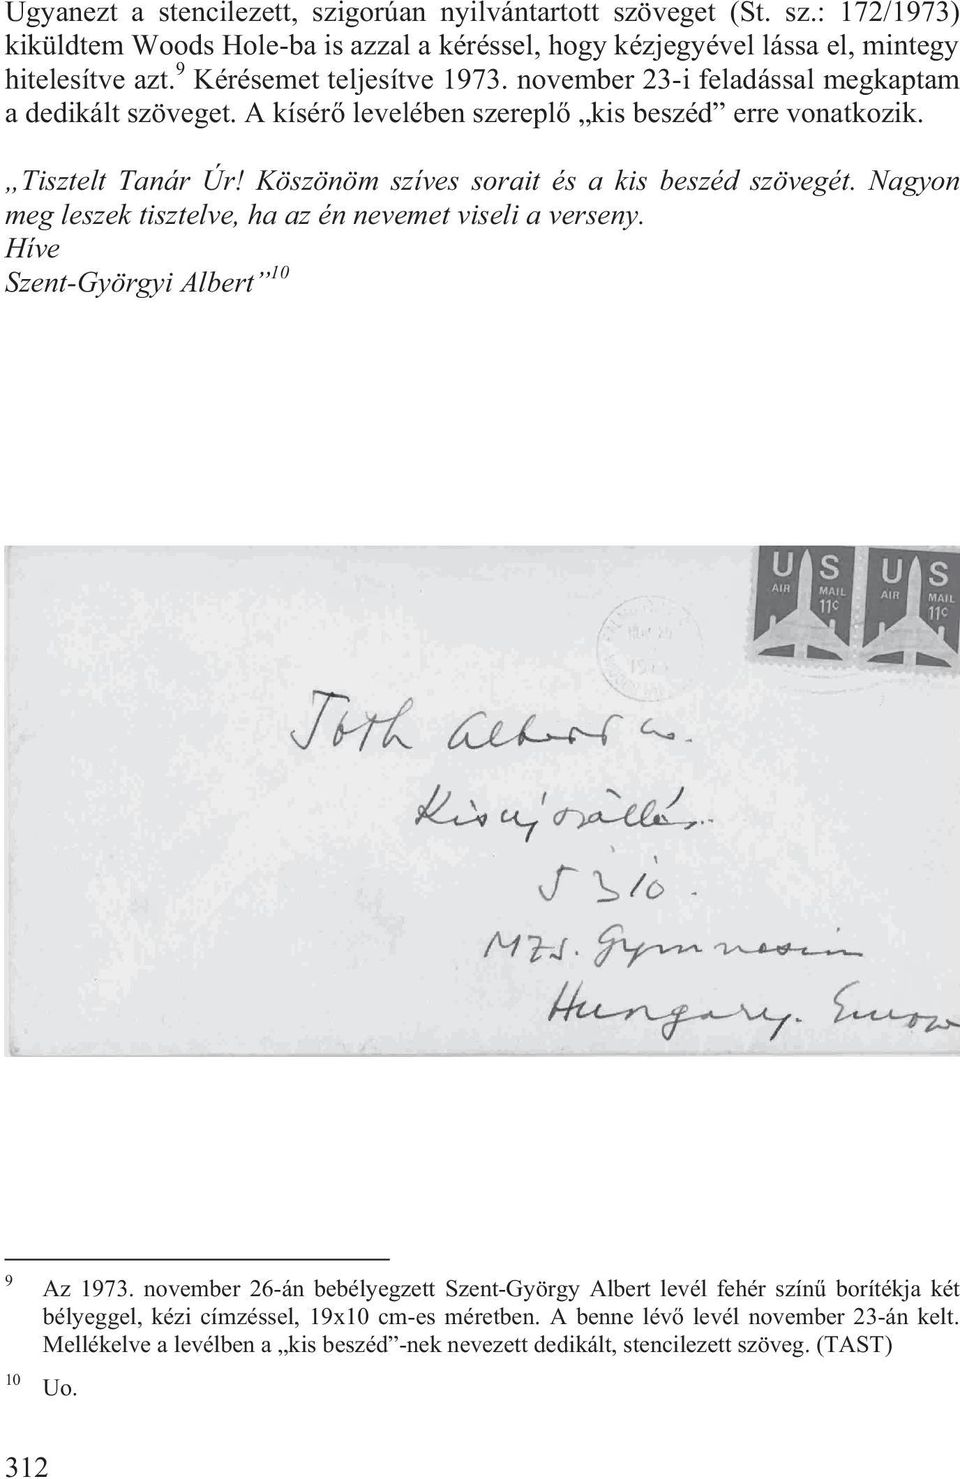 Ugyanezt a stencilezett, szigorúan nyilvántartott szöveget (St. sz.: 172/1973)
kiküldtem Woods Hole-ba is azzal a kéréssel, hogy kézjegyével lássa el, mintegy
hitelesítve azt.9 Kérésemet teljesítve 1973. november 23-i feladással megkaptam
a dedikált szöveget. A kísérő levelében szereplő „kis beszéd” erre vonatkozik.
„Tisztelt Tanár Úr! Köszönöm szíves sorait és a kis beszéd szövegét. Nagyon
meg leszek tisztelve, ha az én nevemet viseli a verseny.
Híve
Szent-Györgyi Albert”10
US
AIR MAIL
11c
US
AIR MAIL
11c
Toth Albert
Kisujszállás
5310.
MZs. Gymnasium
Hungary.
9 Az 1973. november 26-án bebélyegzett Szent-György Albert levél fehér színű borítékja két
bélyeggel, kézi címzéssel, 19x10 cm-es méretben. A benne lévő levél november 23-án kelt.
Mellékelve a levélben a „kis beszéd”-nek nevezett dedikált, stencilezett szöveg. (TAST)
10 Uo.
312